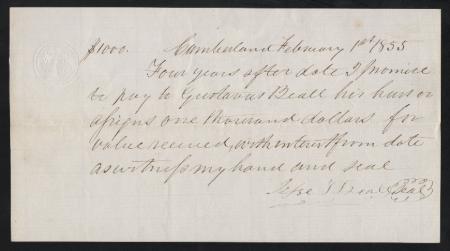 $1000. Cumberland February 1st 1855
Four years after date I promise
to pay to Gustavus Beall his heirs or
assigns one thousand dollars for
value received, with interest from date
as witness my hand and seal
Jesse Beal Seal